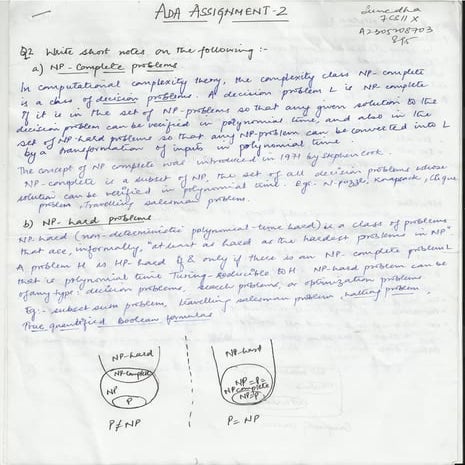 ADA ASSIGNMENT-2
Sunedha
7CS11X
A2305708703
Q2 Write short notes on the following :-
a) NP-Complete problems
In computational complexity theory, the complexity class NP-complete
is a class of decision problems. A decision problem L is NP complete
if it is in the set of NP-problems so that any given solution to the
decision problem can be verified in polynomial time, and also in the
set of NP-hard problems so that any NP problem can be converted into L
by a transformation of inputs in polynomial time.
The concept of NP complete was introduced in 1971 by Stephen Cook.
NP-complete is a subset of NP, the set of all decision problems whose
solution can be verified in polynomial time. Eg:- N-puzzle, Knapsack, Clique
problem, Travelling salesman problem.
b) NP-hard problems
NP-hard (non-deterministic polynomial-time hard) is a class of problems
that are, informally, "at least as hard as the hardest problems in NP"
A problem H is NP-hard if & only if there is an NP-complete problem L
that is polynomial time Turing-reducible to H. NP-hard problem can be
of any type - decision problems, search problems, or optimization problems
Eg:- subset sum problem, travelling salesman problem, halting problem,
True quantified Boolean formulas
NP-hard
NP-complete
NP
P
P≠NP
NP-hard
NP=P=
NP complete
NP=P
P=NP